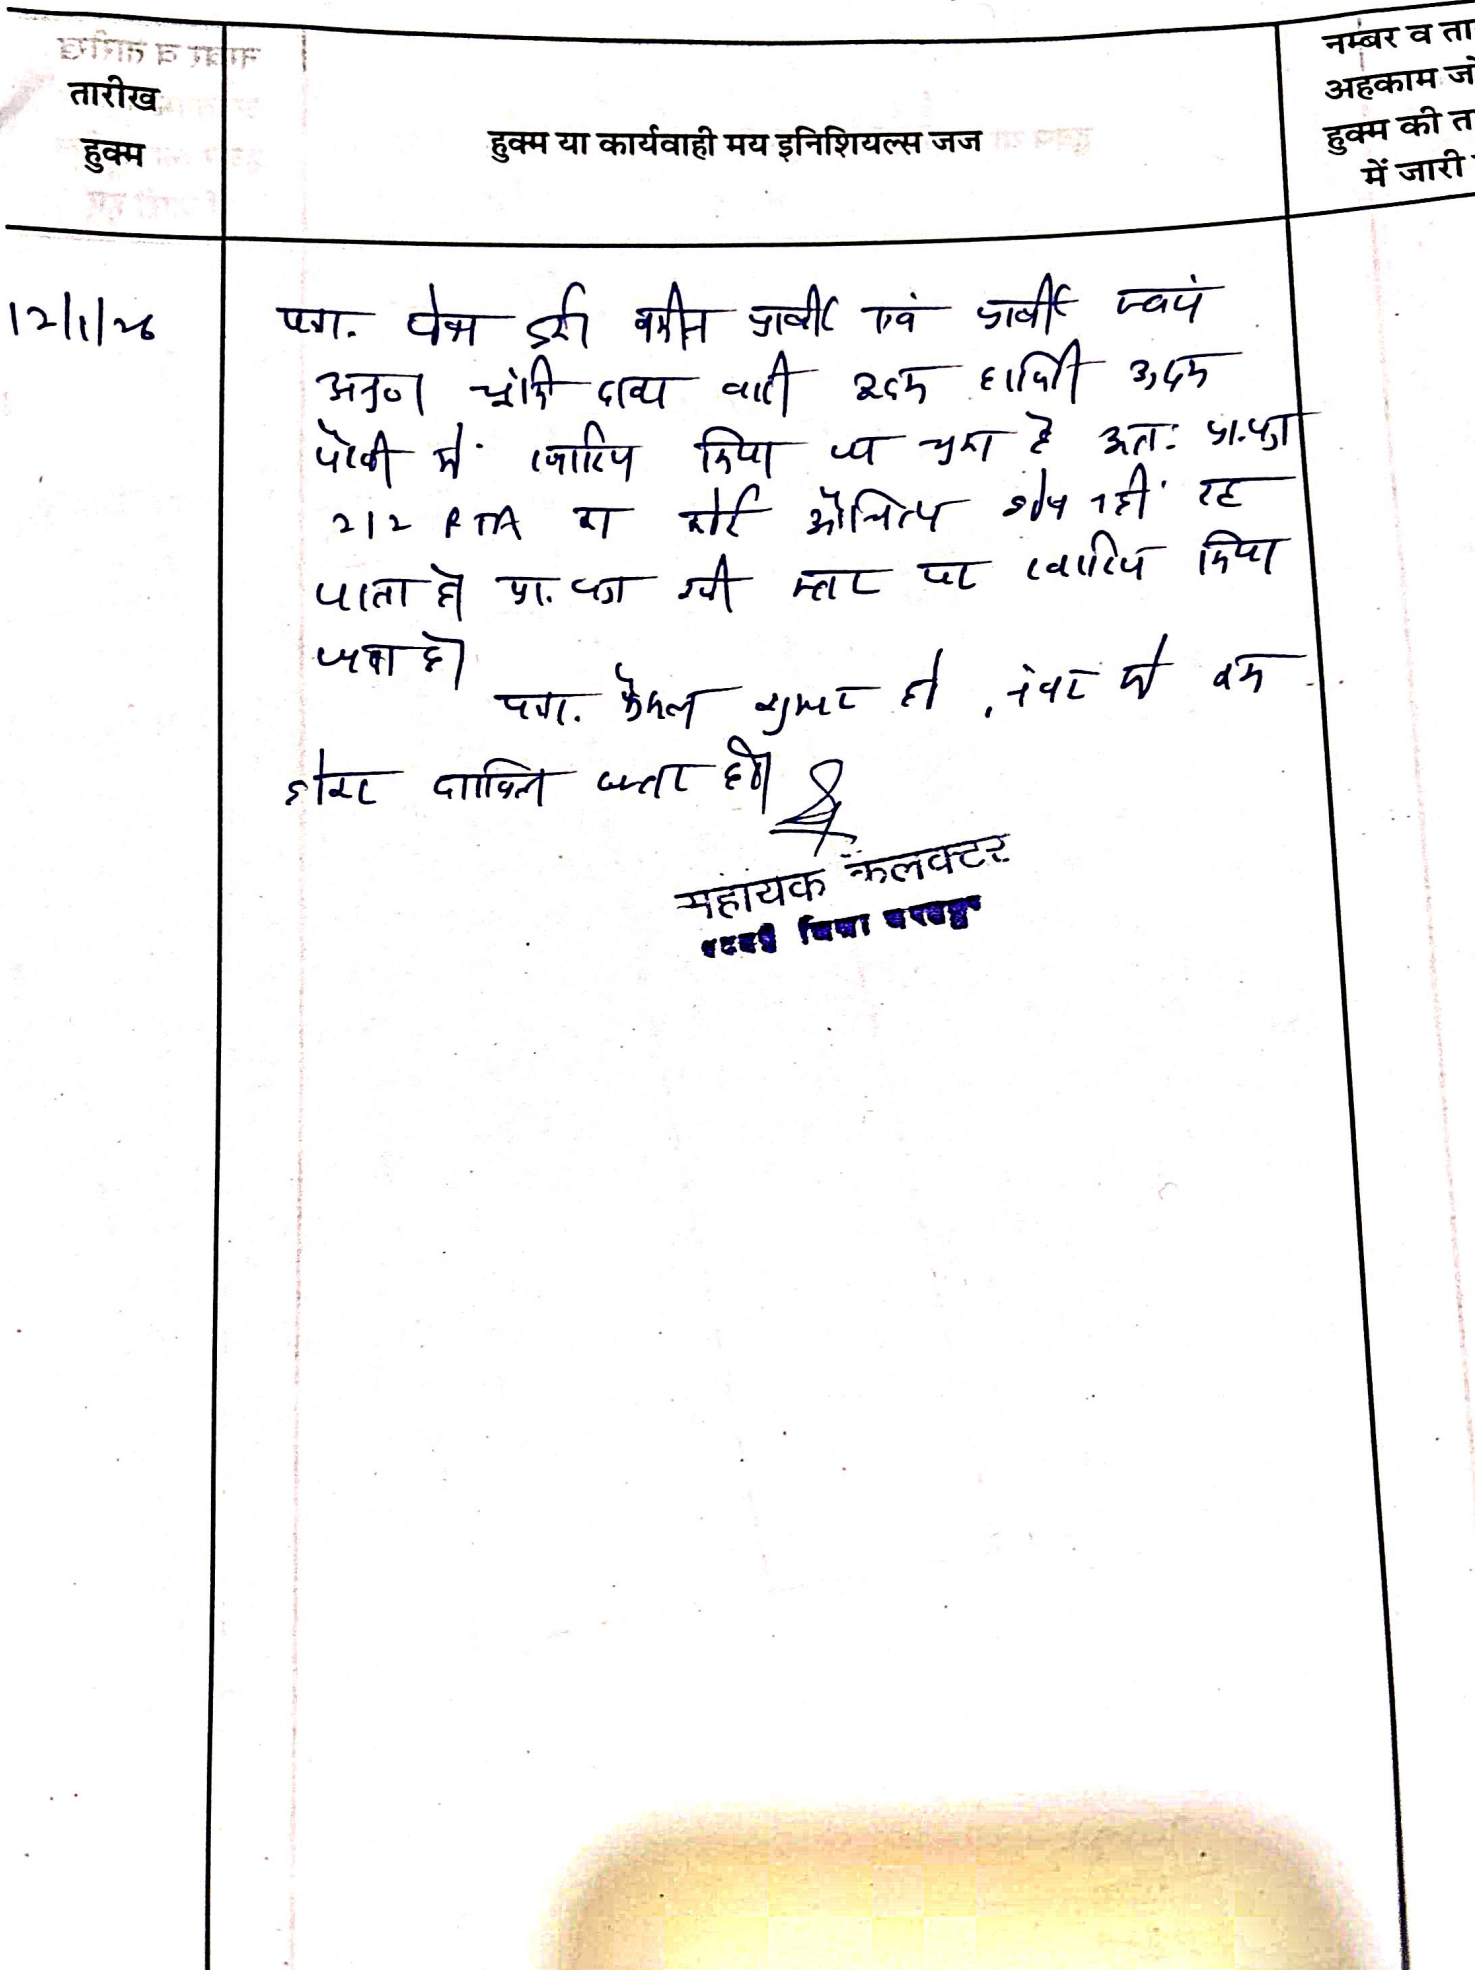 तारीख
हुक्म
हुक्म या कार्यवाही मय इनिशियल्स जज
नम्बर व ता
अहकाम ज
हुक्म की त
में जारी
12/1/26
पत्रा. पेश हुई वकील प्रार्थी एवं प्रार्थी स्वयं
अनु0। चूंकि दावा वादी अदम हाजिरी अदम
पैरवी में खारिज किया जा चुका है अतः प्रा.पत्र
212 RTA का कोई औचित्य शेष नहीं रह
जाता है प्रा.पत्र इसी स्तर पर खारिज किया
जाता है।
पत्रा. फैसल शुमार हो, नंबर से कम
होकर दाखिल दफ्तर हो।
सहायक कलक्टर